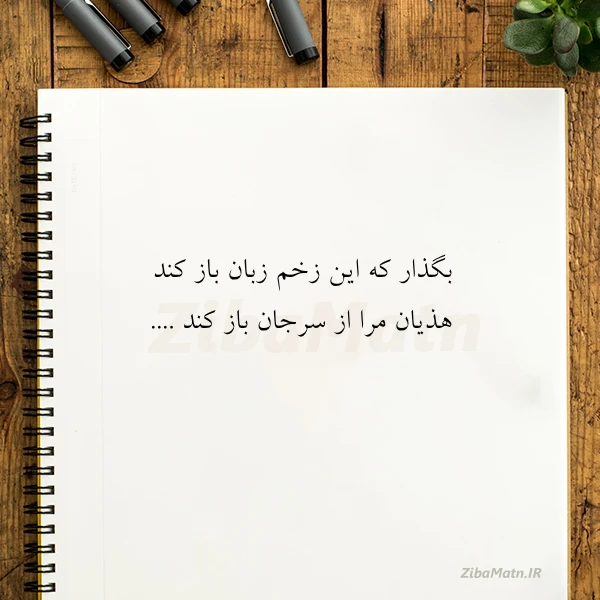 بگذار که این زخم زبان باز کند
هذیان مرا از سرجان باز کند ....
ZibaMatn
ZibaMatn.IR